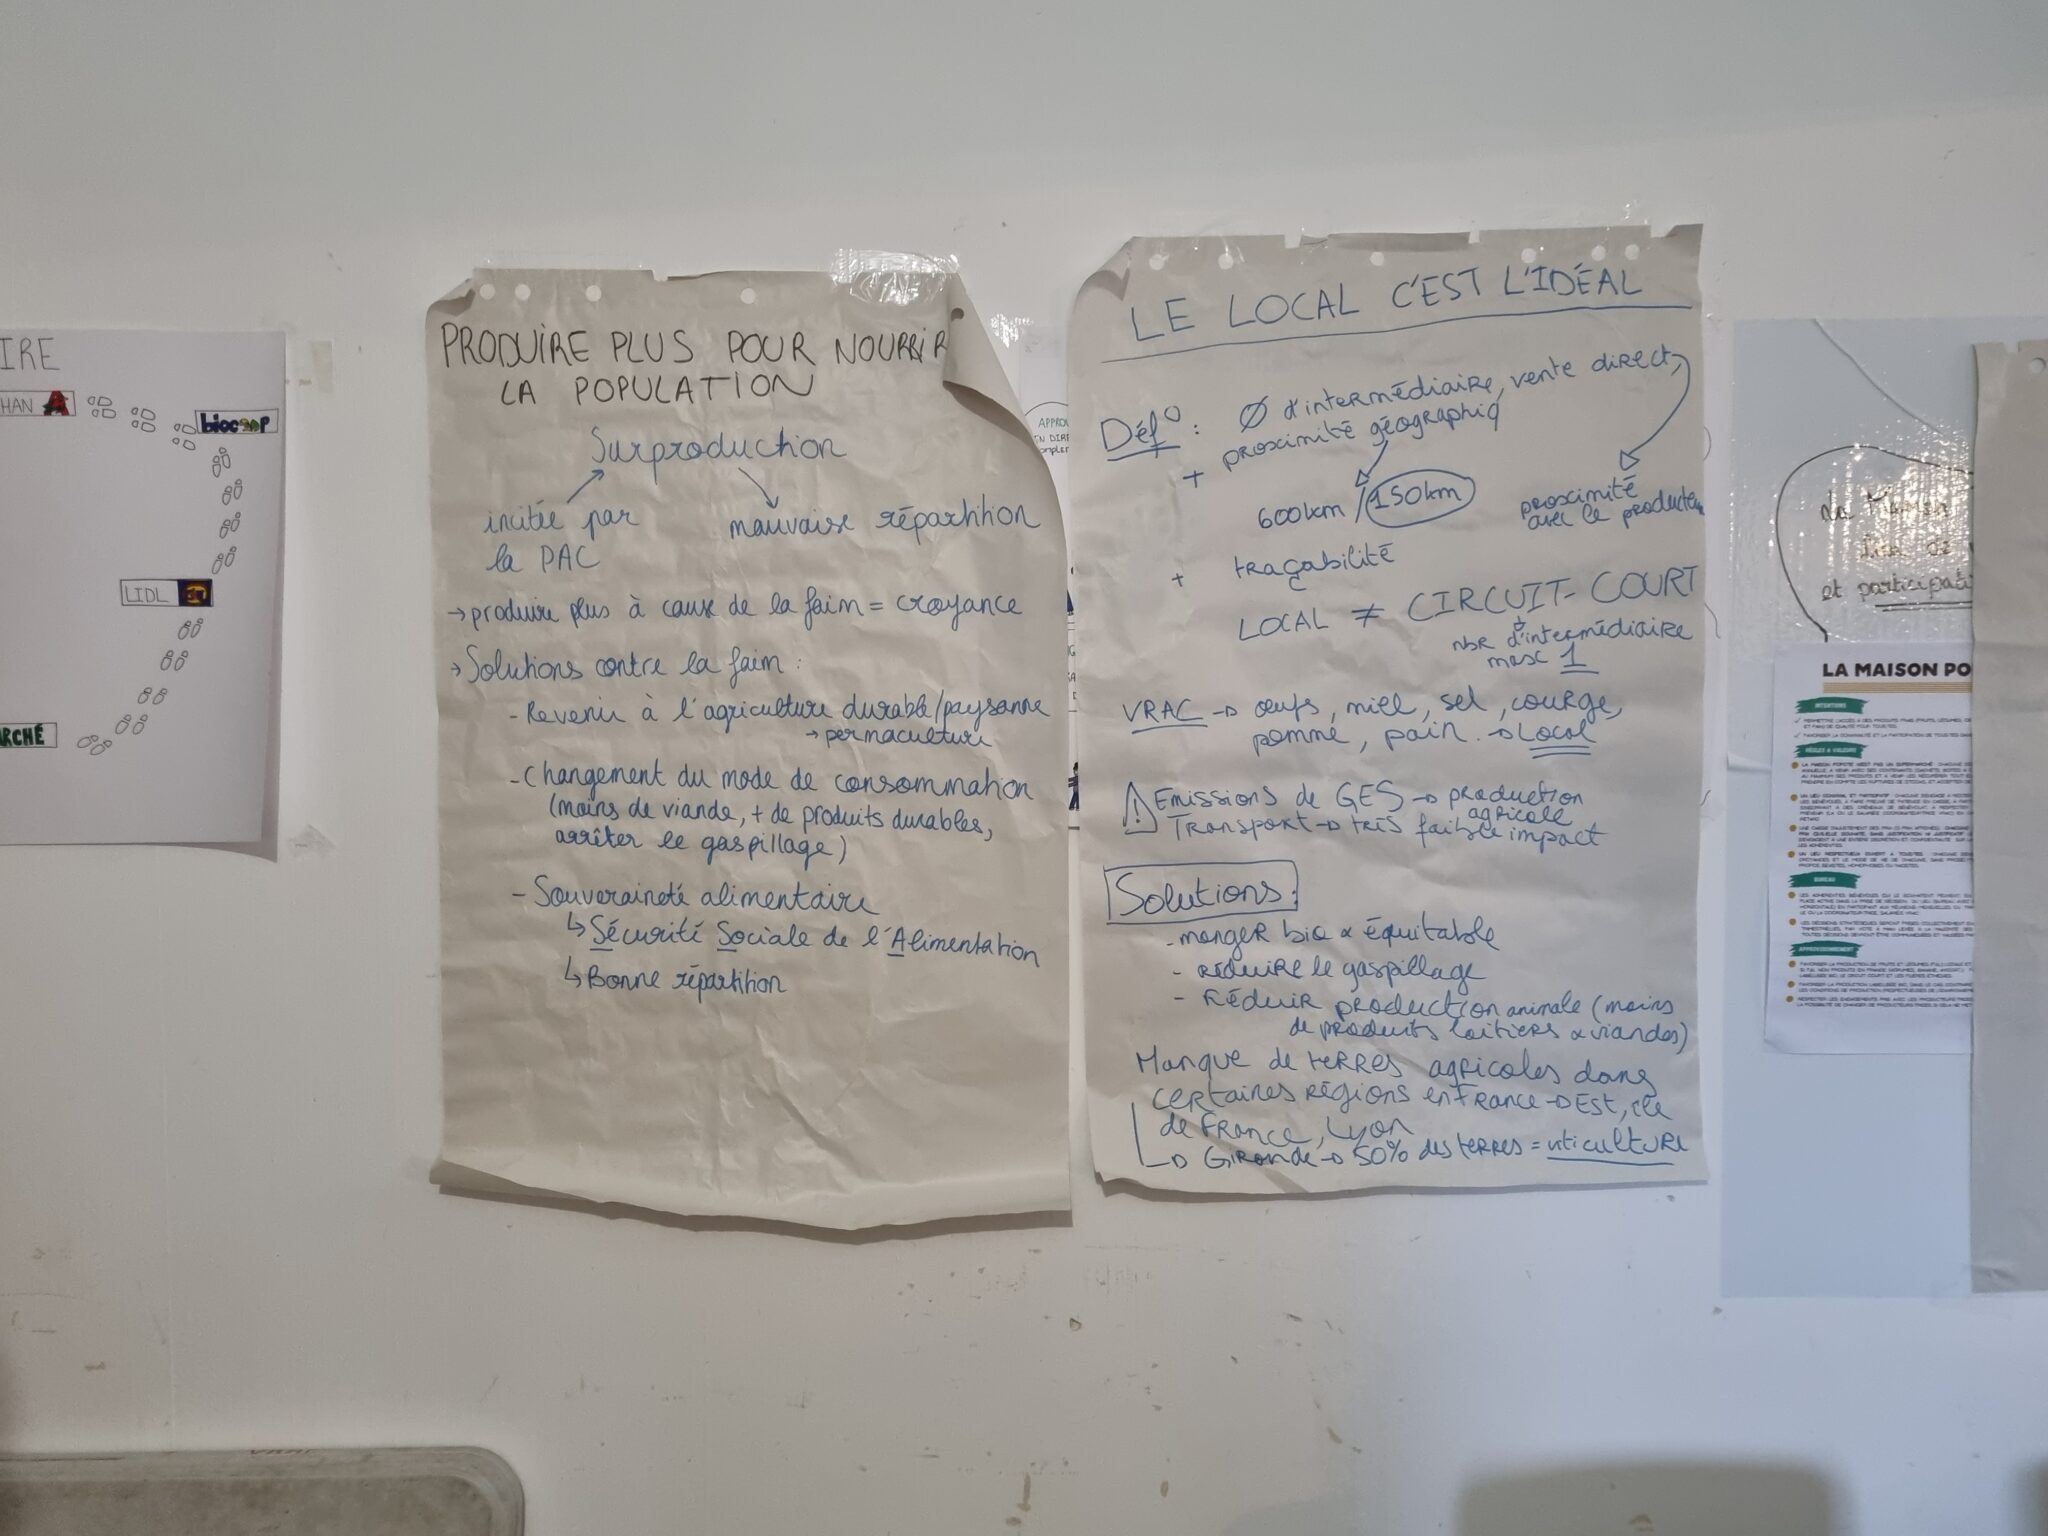 IRE
HAN
biocoop
LIDL
RCHÉ
PRODUIRE PLUS POUR NOURRIR
LA POPULATION
Surproduction
incitée par
la PAC
mauvaise répartition
→ produire plus à cause de la faim = croyance
→ Solutions contre la faim :
- Revenir à l'agriculture durable/paysanne
→ permaculture
- Changement du mode de consommation
(moins de viande, + de produits durables,
arrêter le gaspillage)
- Souveraineté alimentaire
↳ Sécurité Sociale de l'Alimentation
↳ Bonne répartition
LE LOCAL C'EST L'IDÉAL
Déf° : Ø d'intermédiaire, vente direct,
+ proximité géographiq
600km / 150km
proximité
avec le producteur
+ traçabilité
LOCAL ≠ CIRCUIT-COURT
nbr d'intermédiaire
max 1
VRAC → œufs, miel, sel, courge,
pomme, pain. → Local
⚠ Emissions de GES → production
agricole
Transport → très faible impact
Solutions :
- manger bio & équitable
- réduire le gaspillage
- réduir production animale (moins
de produits laitiers & viandes)
Manque de terres agricoles dans
certaines régions en France → Est, île
de France, Lyon
→ Gironde → 50% des terres = viticulture
APPRO
et participati
LA MAISON PO
INTENTIONS
RÈGLES & VALEURS
BUREAU
APPROVISIONNEMENT